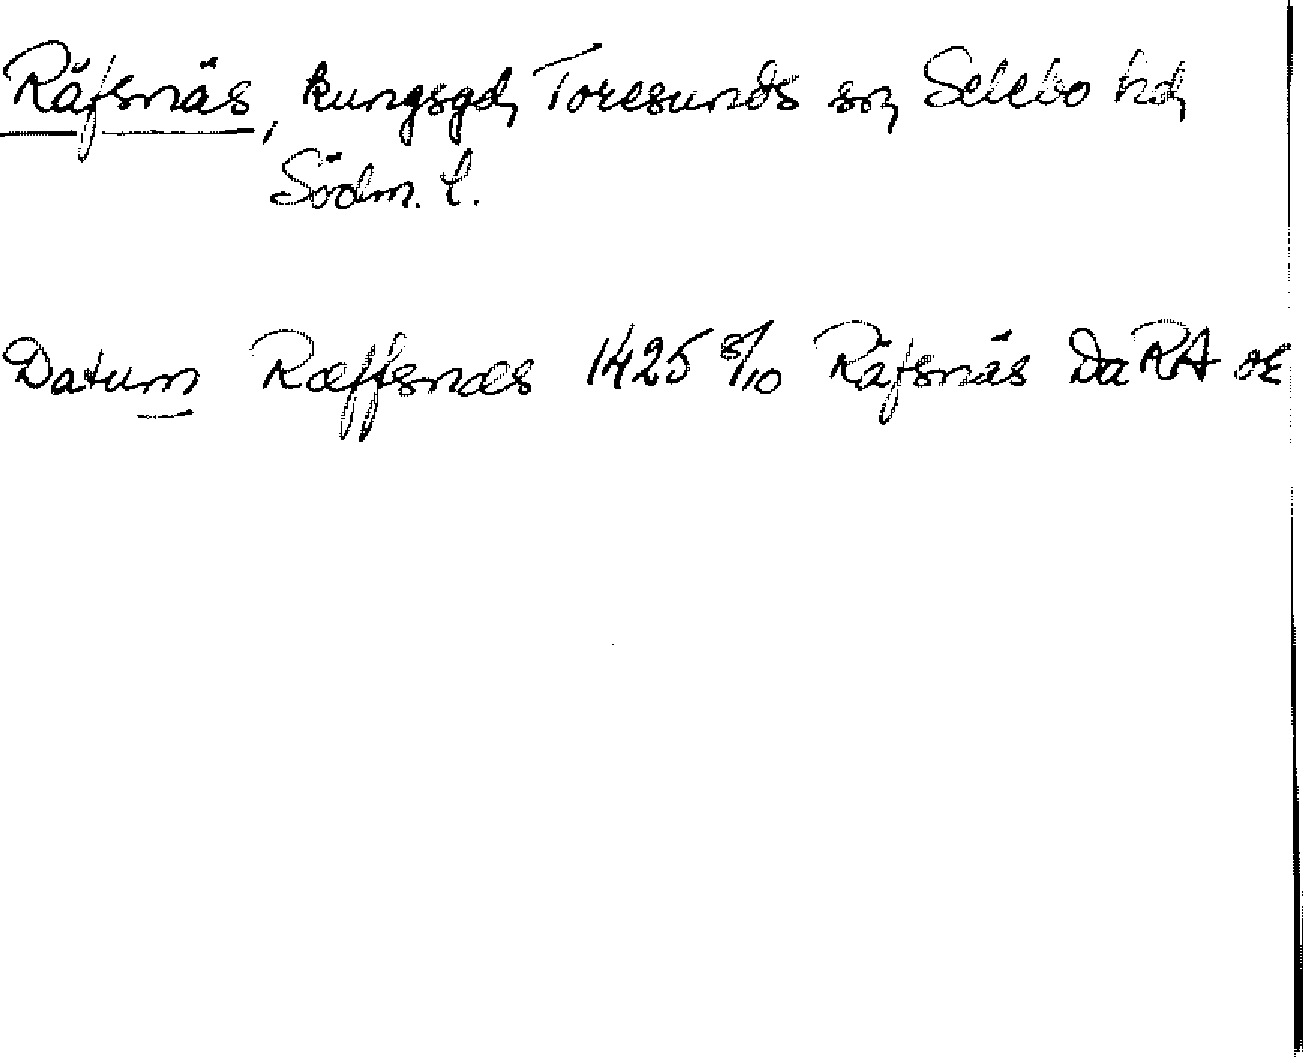 Räfsnäs, kungsgd, Toresunds sn, Selebo hd,
Södm. l.
Datum Ræffsnæs 1425 8/10 Räfsnäs Da RA oE